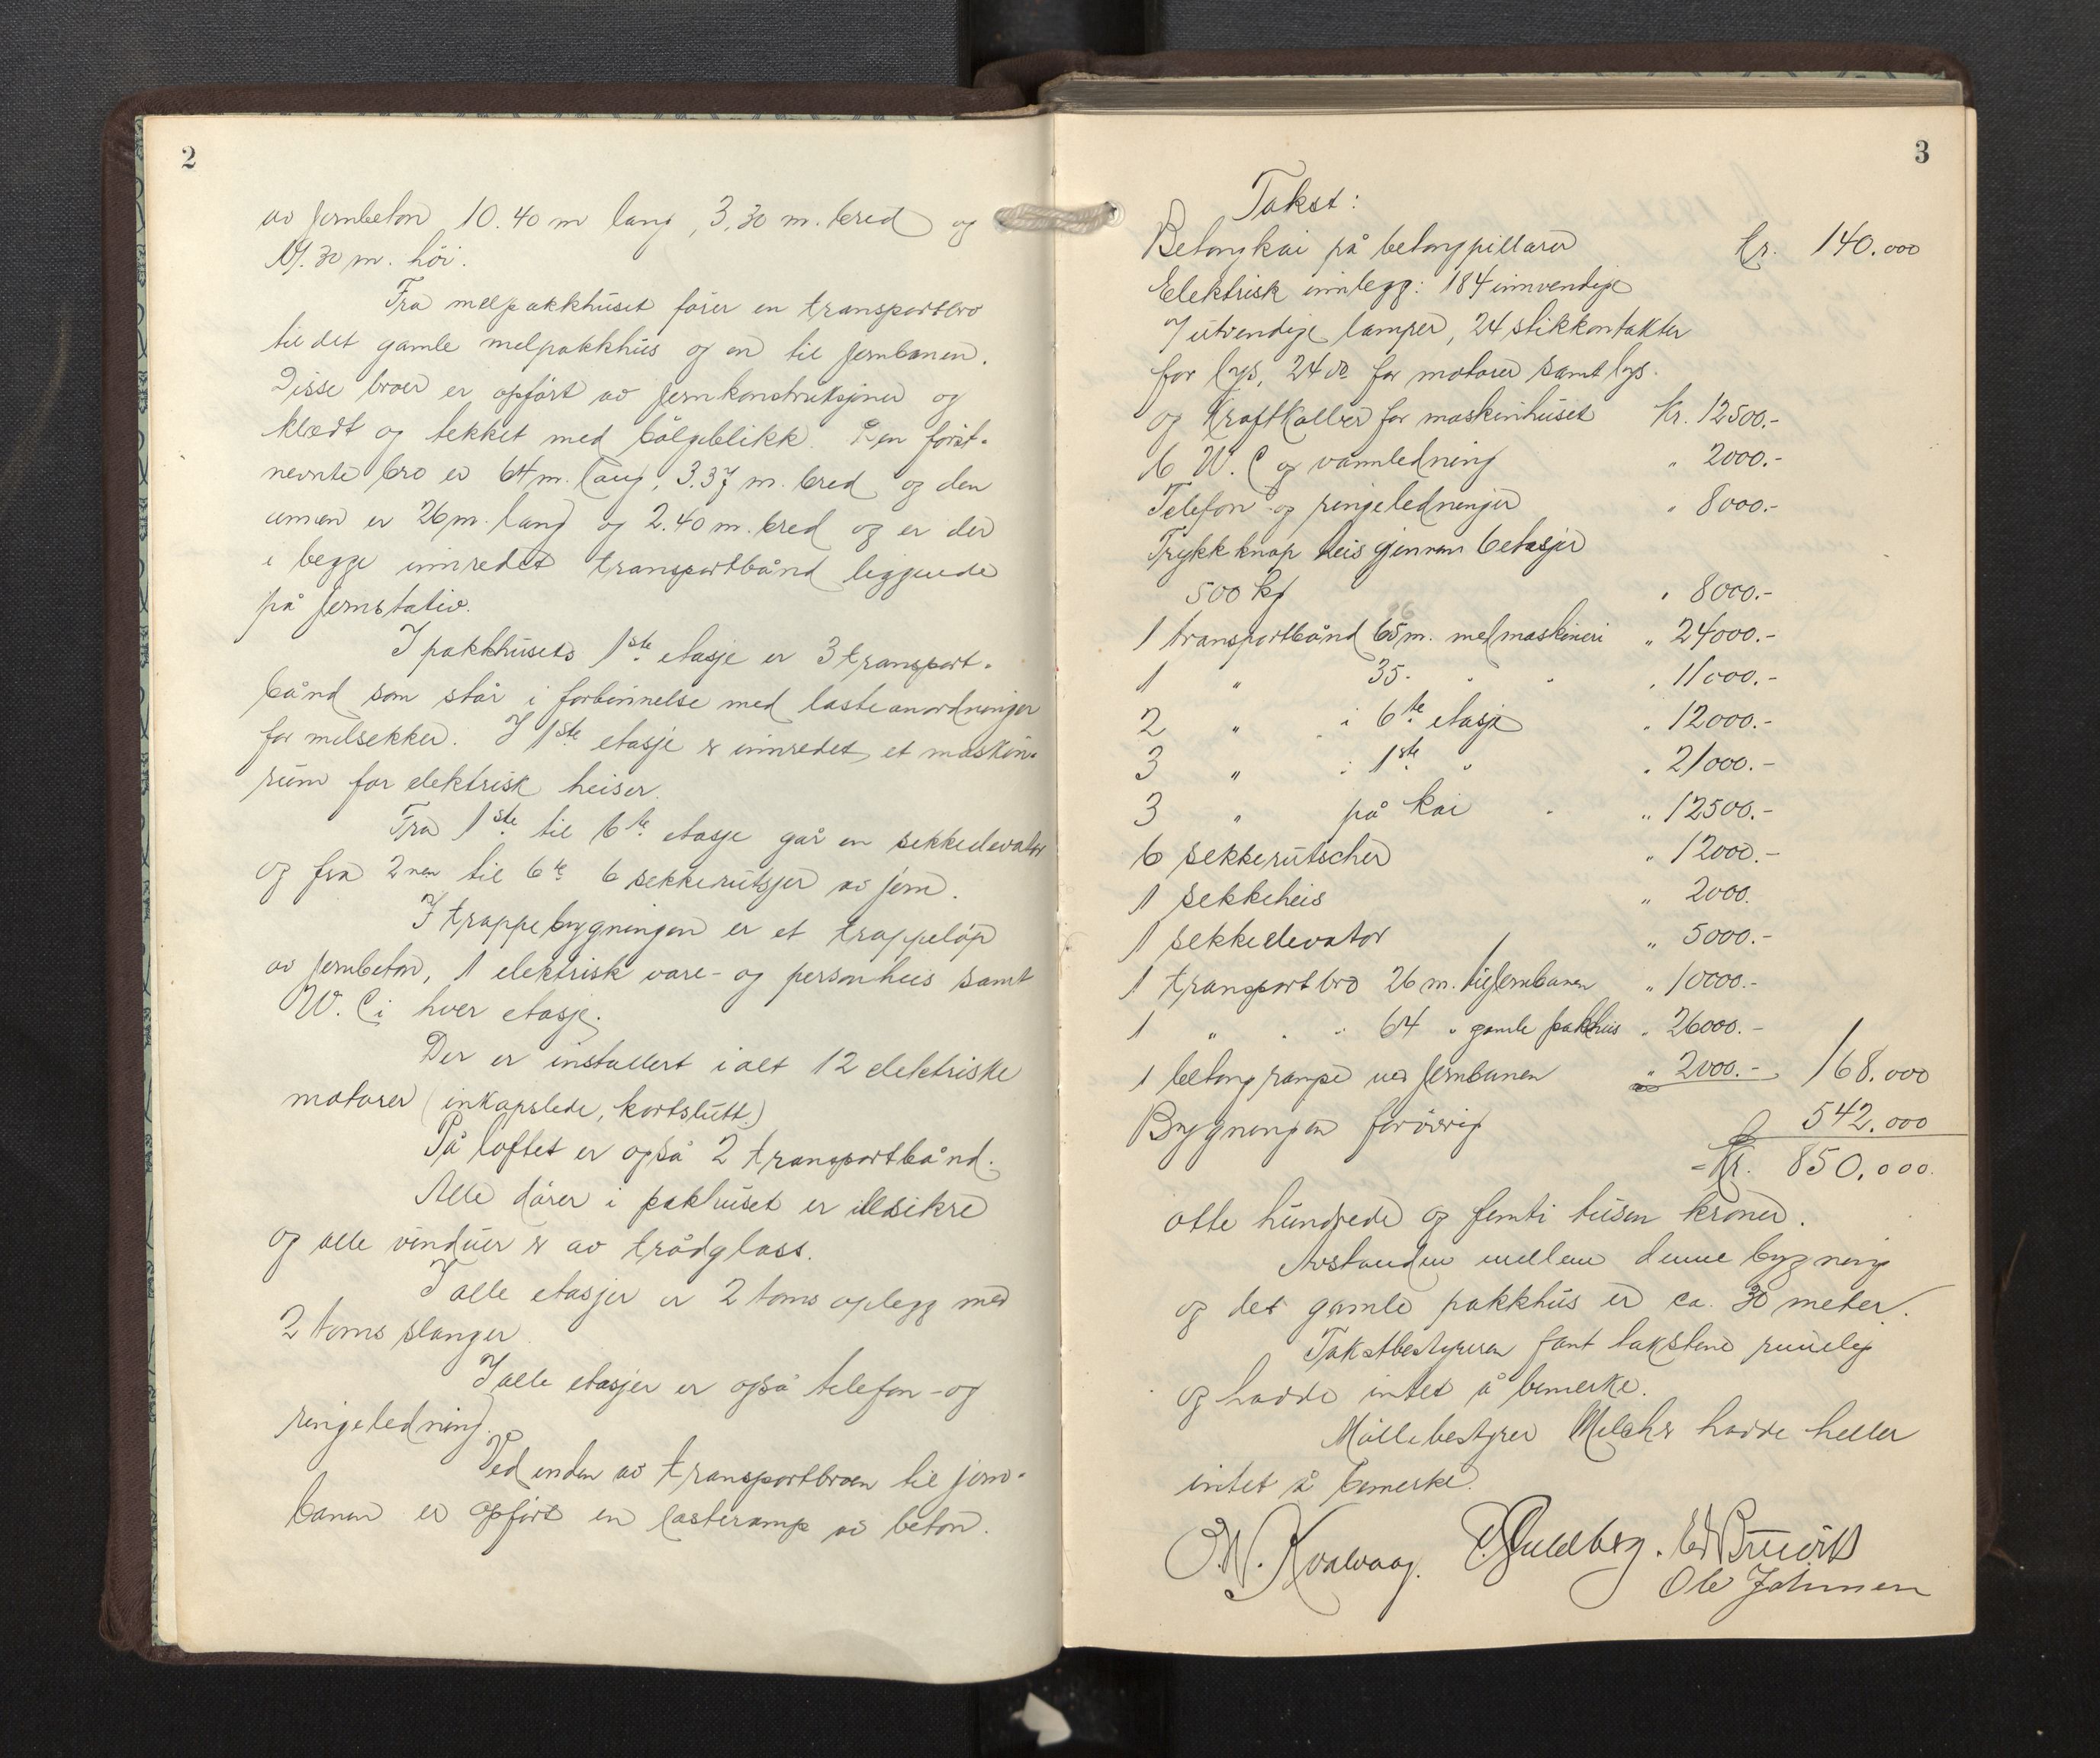 2
av jernbeton 10.40 m lang, 3,30 m. bred og
19.30 m. höi.
Fra melpakkhuset förer en transportbro
til det gamle melpakkhus og en til jernbanen.
Disse broer er opfört av jernkonstruksjoner og
klædt og tekket med bölgeblikk. Den först-
nevnte bro er 64 m. lang, 3.37 m. bred og den
annen er 26 m. lang og 2.40 m. bred og er der
i begge innredet transportbånd liggende
på jernstativ.
I pakkhusets 1ste etasje er 3 transport-
bånd som står i forbinnelse med lasteanordninger
for melsekker. I 1ste etasje er innredet et maskin-
rum for elektrisk heiser.
Fra 1ste til 6te etasje går en sekkeelevator
og fra 2nen til 6te 6 sekkerutsjer av jern.
I trappebygningen er et trappelöp
av jernbeton, 1 elektrisk vare- og personheis samt
W. C i hver etasje.
Der er installert ialt 12 elektriske
motorer (inkapslede, kortslutt.)
På loftet er også 2 transportbånd.
Alle dörer i pakhuset er ildsikre
og alle vinduer er av trådglass.
I alle etasjer er 2 toms oplegg med
2 toms slanger.
I alle etasjer er også telefon- og
ringeledning.
Ved enden av transportbroen til jern-
banen er opfört en lasterampe av beton.
3
Takst:
Betongkai på betongpillarer Kr. 140.000
Elektrisk innlegg: 184 innvendige
7 utvendige lamper, 24 stikkontakter
for lys, 24 do for motorer samt lys-
og kraftkabler for maskinhuset Kr. 12500.-
6 W. C og vannledning " 2000.-
Telefon og ringeledninger " 8000.-
Trykknap heis gjennem 6 etasjer
500 kg " 8000.-
1 transportbånd 65 m. med maskineri " 24000.-
1 " 35 - " " " 11000.-
2 " i 6te etasje " 12000.-
3 " i 1ste " " 21000.-
3 " på kai " 12500.-
6 sekkerutscher " 12000.-
1 sekkeheis " 2000.
1 sekkeelevator " 5000.-
1 transportbro 26 m. til jernbanen " 10000.-
1 " " 64 " gamle pakkhus " 26000.-
1 betongrampe ved jernbanen " 2000.- 168.000
Bygningen forövrig 542.000
= Kr. 850.000.
otte hundrede og femti tusen kroner.
Avstanden mellem denne bygning
og det gamle pakkhus er ca. 30 meter.
Takstbestyreren fant takstene rimelig
og hadde intet å bemerke.
Möllebestyrer hadde heller
intet å bemerke.
O.W. Kvalvaag. Guldberg.
Ole Johnsen